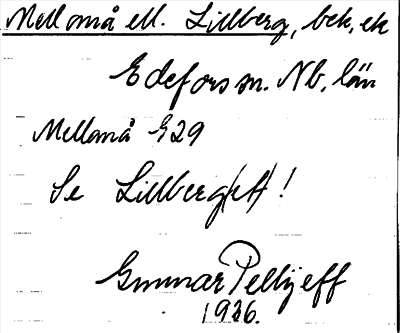 Mellomå ell. Lillberg, bek, ek
Edefors sn. Nb, län
Mellomå E29
Se Lillberg(et)!
Gunnar Pellijeff
1936.